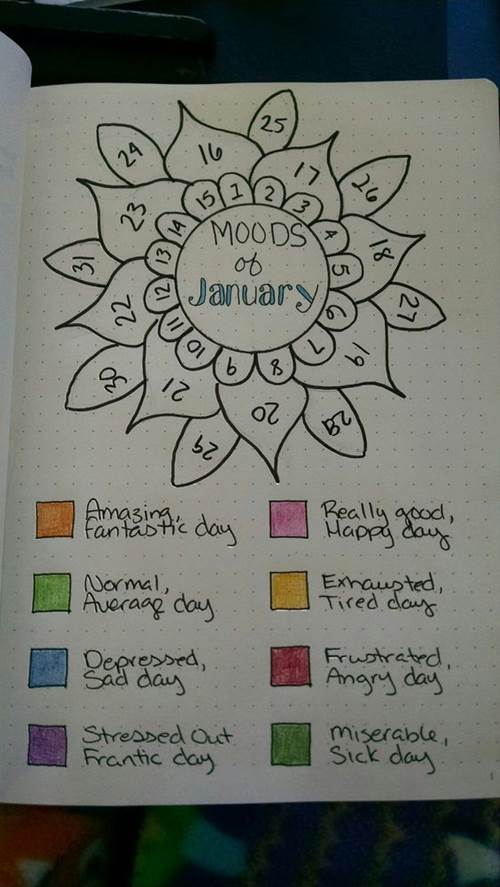 MOODS
of
January
1
2
3
4
5
6
7
8
9
10
11
12
13
14
15
16
17
18
19
20
21
22
23
24
25
26
27
28
29
30
31
Amazing,
Fantastic day
Really good,
Happy day
Normal,
Average day
Exhausted,
Tired day
Depressed,
Sad day
Frustrated,
Angry day
Stressed Out
Frantic day
Miserable,
Sick day